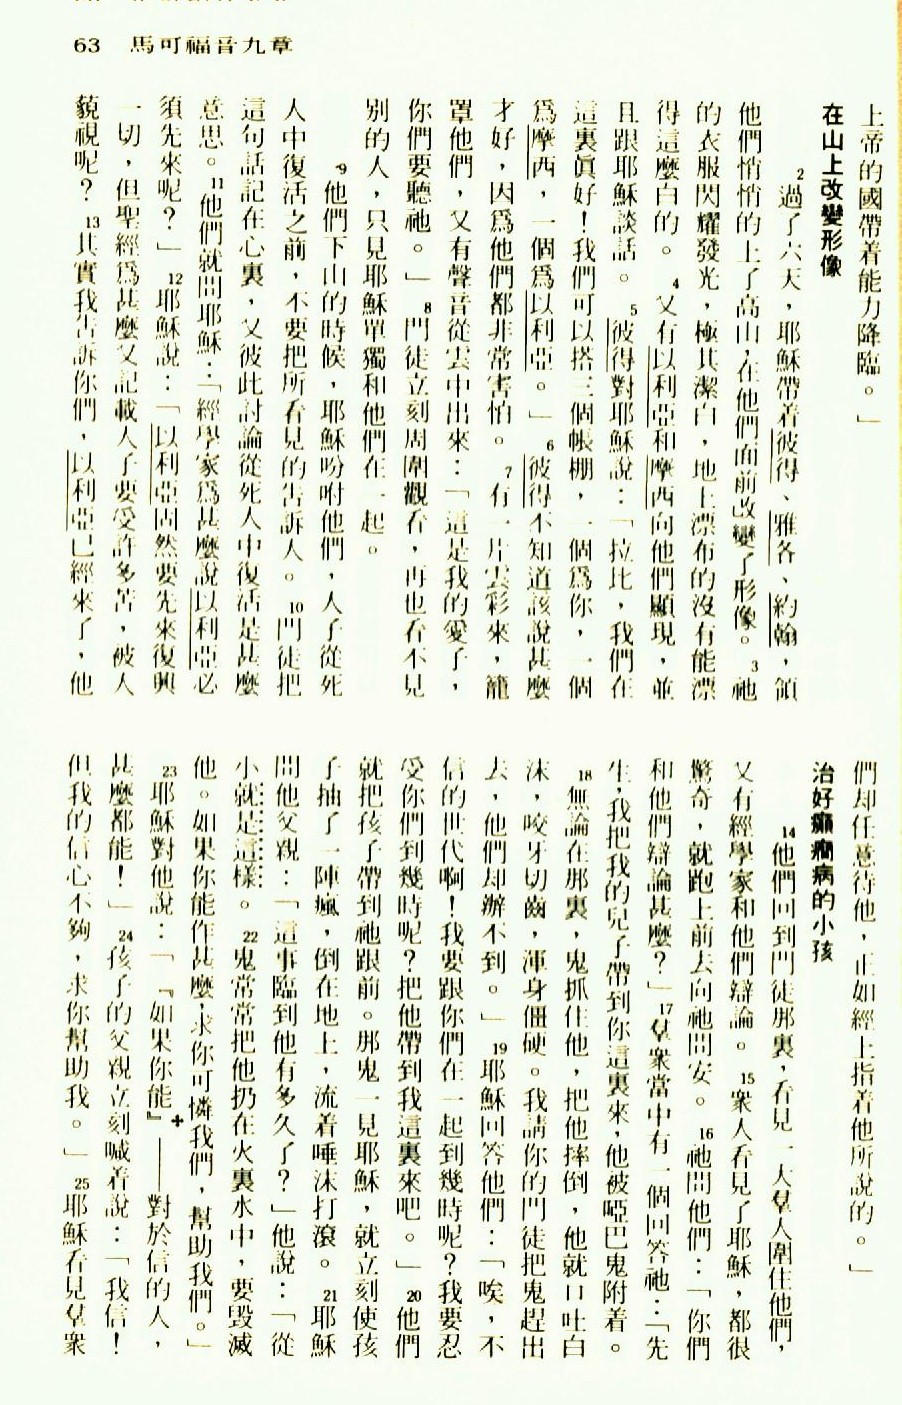 63 馬可福音九章
上帝的國帶着能力降臨。」
在山上改變形像
2過了六天，耶穌帶着彼得、雅各、約翰，領
他們悄悄的上了高山，在他們面前改變了形像。3祂
的衣服閃耀發光，極其潔白，地上漂布的沒有能漂
得這麼白的。4又有以利亞和摩西向他們顯現，並
且跟耶穌談話。5彼得對耶穌說：「拉比，我們在
這裏眞好！我們可以搭三個帳棚，一個爲你，一個
爲摩西，一個爲以利亞。」6彼得不知道該說甚麼
才好，因爲他們都非常害怕。7有一片雲彩來，籠
罩他們，又有聲音從雲中出來：「這是我的愛子，
你們要聽祂。」8門徒立刻周圍觀看，再也看不見
別的人，只見耶穌單獨和他們在一起。
9他們下山的時候，耶穌吩咐他們，人子從死
人中復活之前，不要把所看見的告訴人。10門徒把
這句話記在心裏，又彼此討論從死人中復活是甚麼
意思。11他們就問耶穌：「經學家爲甚麼說以利亞必
須先來呢？」12耶穌說：「以利亞固然要先來復興
一切，但聖經爲甚麼又記載人子要受許多苦，被人
藐視呢？13其實我告訴你們，以利亞已經來了，他
們却任意待他，正如經上指着他所說的。」
治好癲癇病的小孩
14他們回到門徒那裏，看見一大羣人圍住他們，
又有經學家和他們辯論。15衆人看見了耶穌，都很
驚奇，就跑上前去向祂問安。16祂問他們：「你們
和他們辯論甚麼？」17羣衆當中有一個回答祂：「先
生，我把我的兒子帶到你這裏來，他被啞巴鬼附着。
18無論在那裏，鬼抓住他，把他摔倒，他就口吐白
沫，咬牙切齒，渾身僵硬。我請你的門徒把鬼趕出
去，他們却辦不到。」19耶穌回答他們：「唉，不
信的世代啊！我要跟你們在一起到幾時呢？我要忍
受你們到幾時呢？把他帶到我這裏來吧。」20他們
就把孩子帶到祂跟前。那鬼一見耶穌，就立刻使孩
子抽了一陣瘋，倒在地上，流着唾沫打滾。21耶穌
問他父親：「這事臨到他有多久了？」他說：「從
小就是這樣。22鬼常常把他扔在火裏水中，要毀滅
他。如果你能作甚麼，求你可憐我們，幫助我們。」
23耶穌對他說：「『如果你能』+——對於信的人，
甚麼都能！」24孩子的父親立刻喊着說：「我信！
但我的信心不夠，求你幫助我。」25耶穌看見羣衆